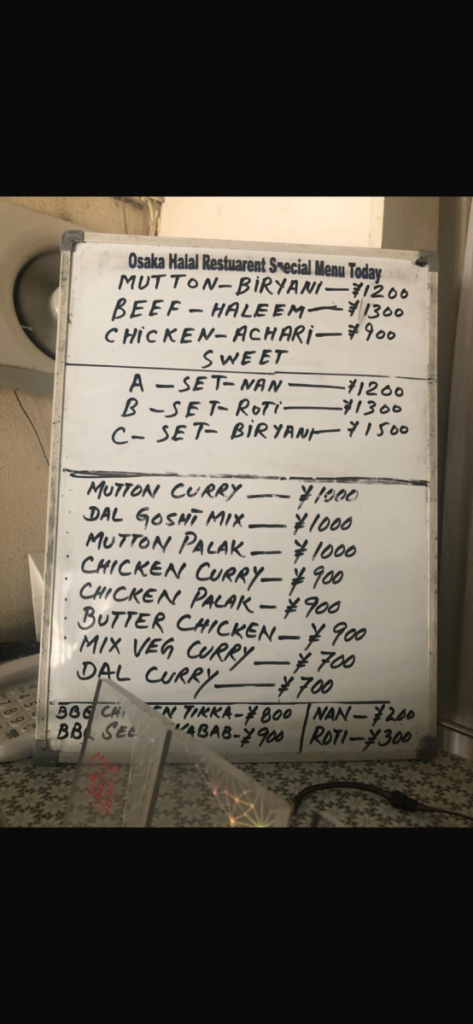 Osaka Halal Restuarent Special Menu Today
MUTTON-BIRYANI-¥1200
BEEF-HALEEM-¥1300
CHICKEN-ACHARI-¥900
SWEET
A-SET-NAN-¥1200
B-SET-ROTI-¥1300
C-SET-BIRYANI-¥1500
MUTTON CURRY-¥1000
DAL GOSHT MIX-¥1000
MUTTON PALAK-¥1000
CHICKEN CURRY-¥900
CHICKEN PALAK-¥900
BUTTER CHICKEN-¥900
MIX VEG CURRY-¥700
DAL CURRY-¥700
TIKKA-¥800 | NAN-¥200
KABAB-¥900 | ROTI-¥300